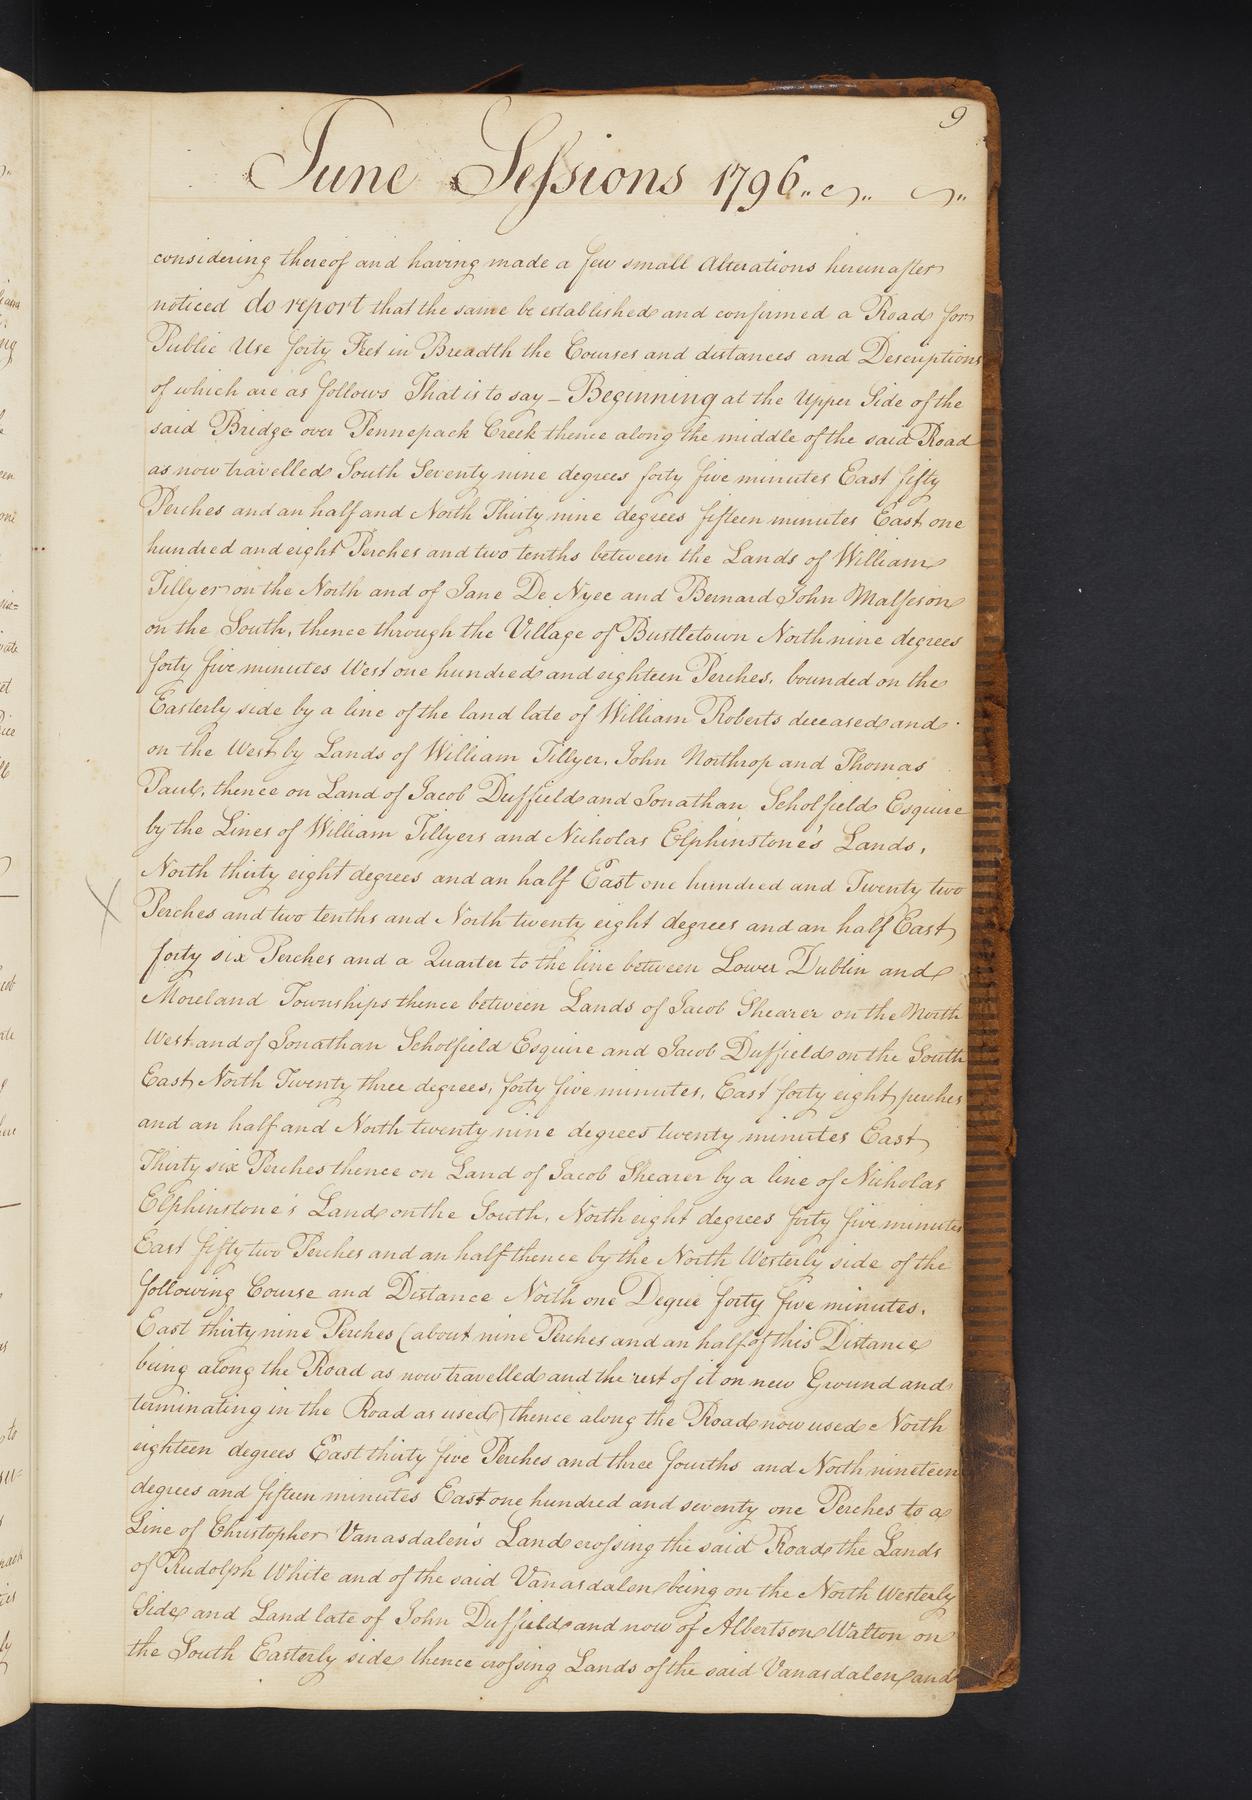 9
June Sessions 1796
considering thereof and having made a few small Alterations hereinafter
noticed do report that the same be established and confirmed a Road for
Public Use forty Feet in Breadth the Courses and distances and Descriptions
of which are as follows That is to say – Beginning at the Upper Side of the
said Bridge over Pennepack Creek thence along the middle of the said Road
as now travelled South Seventy nine degrees forty five minutes East fifty
Perches and an half and North Thirty nine degrees fifteen minutes East one
hundred and eight Perches and two tenths between the Lands of William
Tillyer on the North and of Jane De Nyce and Bernard John Malfeson
on the South, thence through the Village of Bustletown North nine degrees
forty five minutes West one hundred and eighteen Perches, bounded on the
Easterly side by a line of the land late of William Roberts deceased and
on the West by Lands of William Tillyer, John Northrop and Thomas
Paul, thence on Land of Jacob Duffield and Jonathan Scholfield Esquire
by the Lines of William Tillyers and Nicholas Elphinstone's Lands,
North thirty eight degrees and an half East one hundred and Twenty two
Perches and two tenths and North twenty eight degrees and an half East
forty six Perches and a Quarter to the line between Lower Dublin and
Moreland Townships thence between Lands of Jacob Shearer on the North
West and of Jonathan Scholfield Esquire and Jacob Duffield on the South
East North Twenty three degrees, forty five minutes, East forty eight perches
and an half and North twenty nine degrees twenty minutes East
Thirty six Perches thence on Land of Jacob Shearer by a line of Nicholas
Elphinstone's Land on the South, North eight degrees forty five minutes
East fifty two Perches and an half thence by the North Westerly side of the
following Course and Distance North one Degree forty five minutes,
East thirty nine Perches (about nine Perches and an half of this Distance
being along the Road as now travelled and the rest of it on new Ground and
terminating in the Road as used) thence along the Road now used North
eighteen degrees East thirty five Perches and three fourths and North nineteen
degrees and fifteen minutes East one hundred and seventy one Perches to a
Line of Christopher Vanasdalen's Land crossing the said Road the Lands
of Rudolph White and of the said Vanasdalen being on the North Westerly
Side and Land late of John Duffield and now of Albertson Walton on
the South Easterly side thence crossing Lands of the said Vanasdalen and